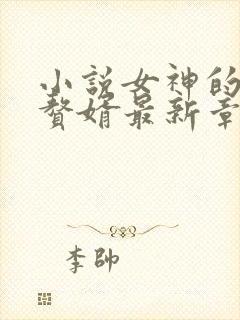 小説女神的
贅婿最新章
李帥